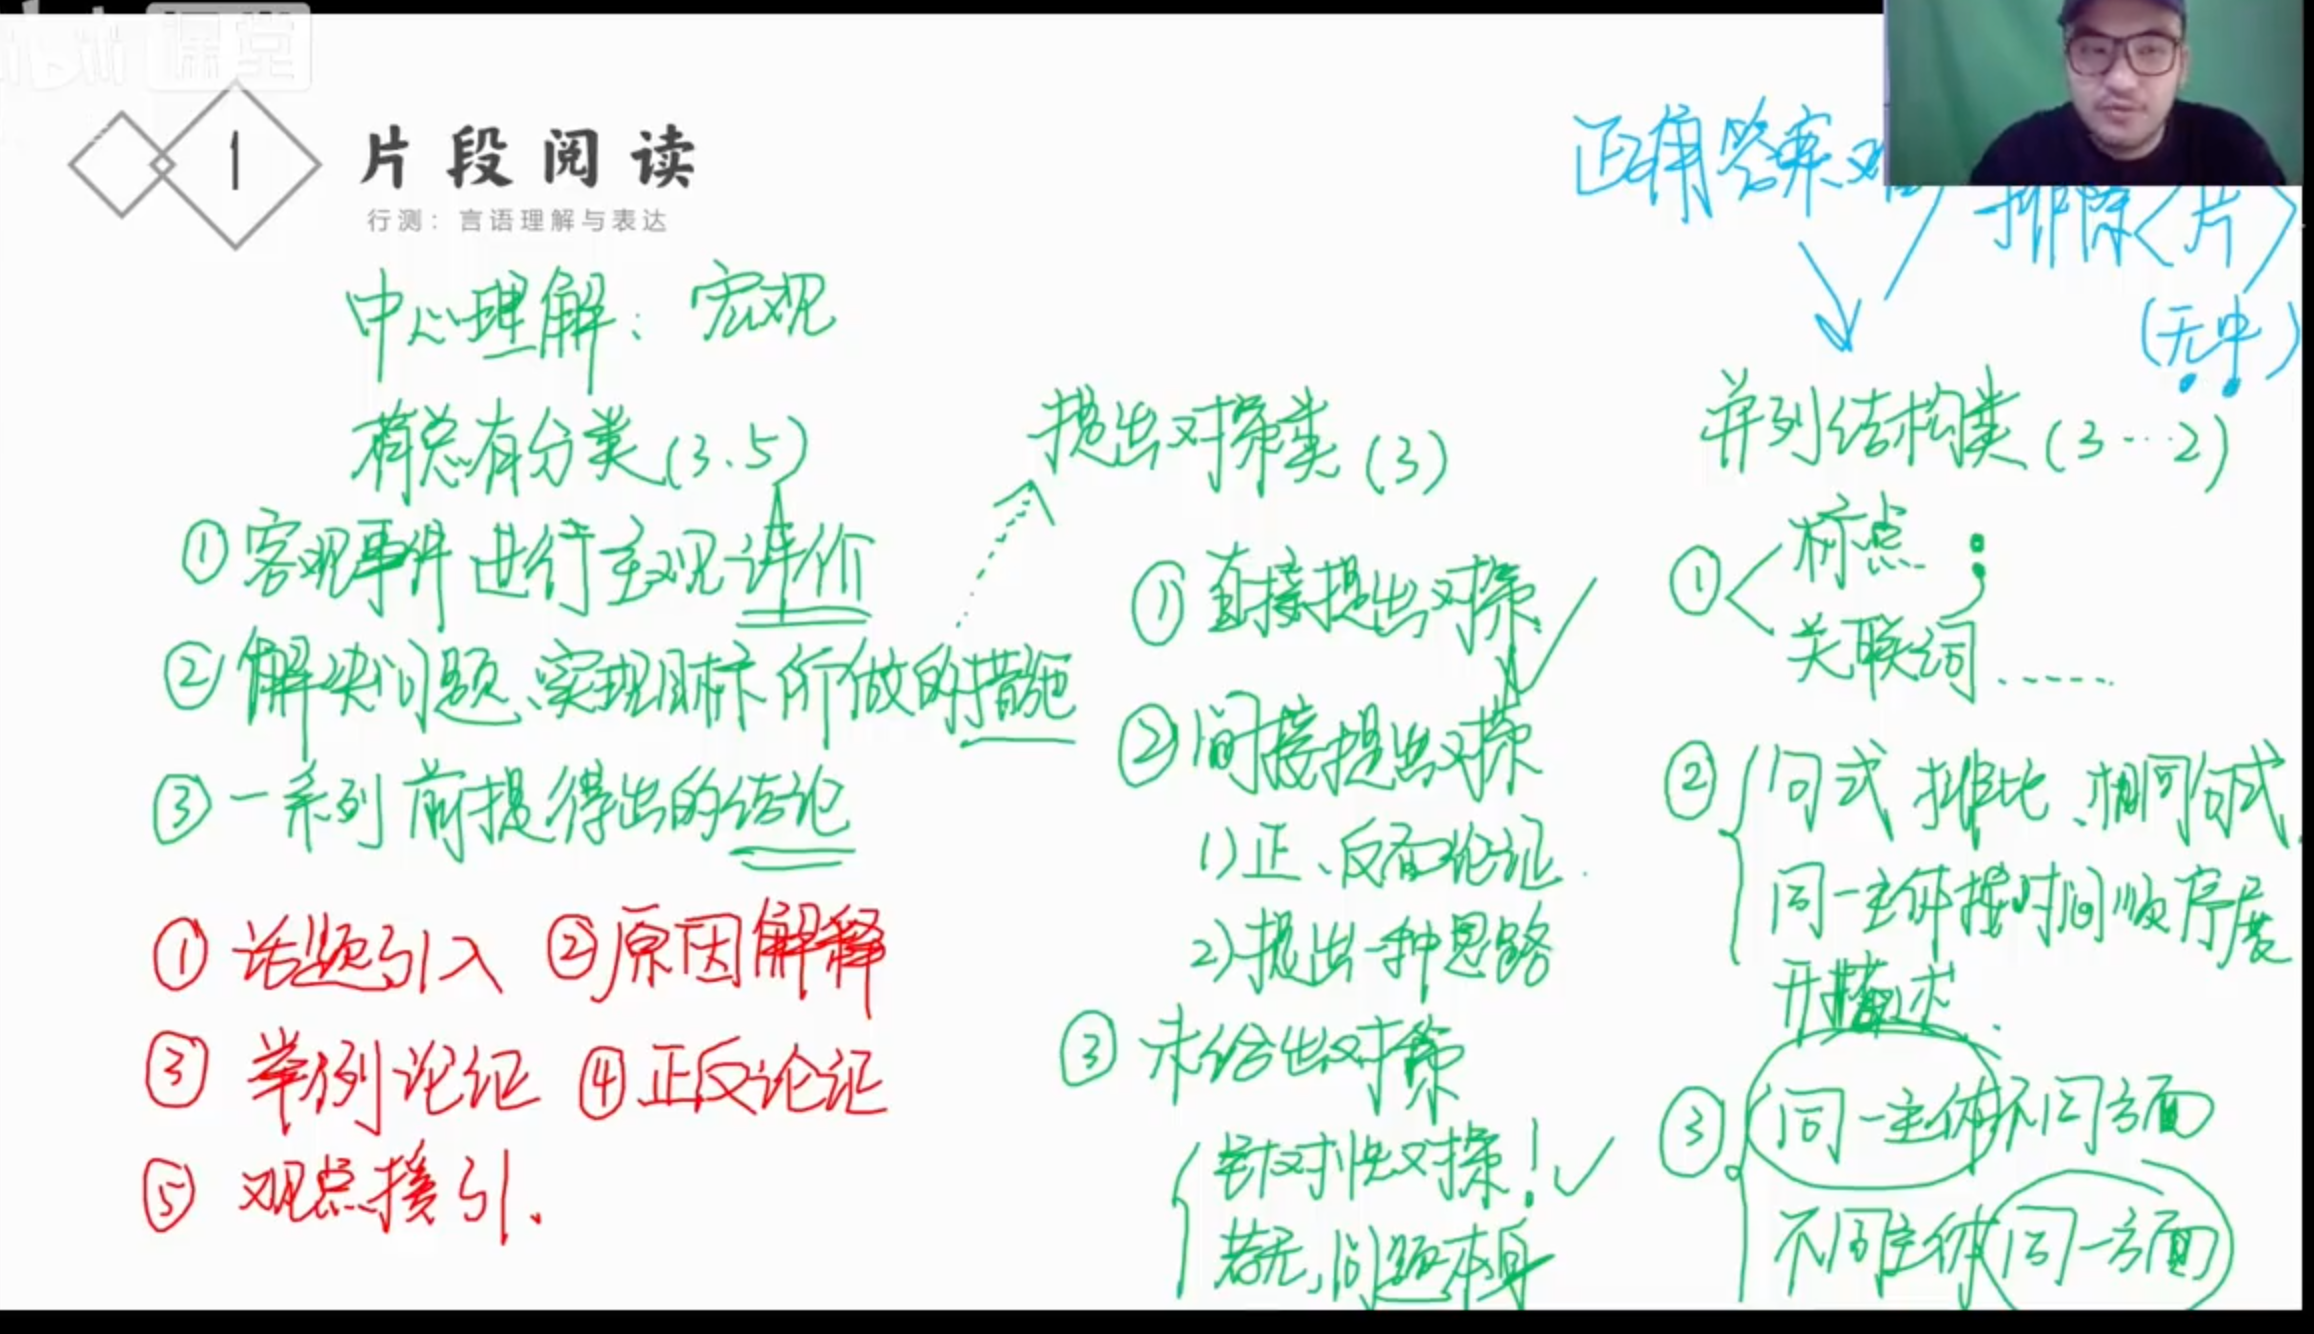 课堂
1
片段阅读
行测：言语理解与表达
正确答案
排除〈片〉
(无中)
中心理解：宏观
有总有分类(3.5)
①客观事件进行主观评价
②解决问题、实现目标所做的措施
③一系列前提得出的结论
①话题引入 ②原因解释
③举例论证 ④正反论证
⑤观点援引.
提出对策类(3)
①直接提出对策
②间接提出对策
1)正、反面论证.
2)提出一种思路
③未给出对策
针对性对策！
若无，问题本身
并列结构类(3…2)
①标点；
关联词……
②句式 排比、相同句式
同一主体按时间顺序展
开描述.
③同一主体不同方面
不同主体同一方面